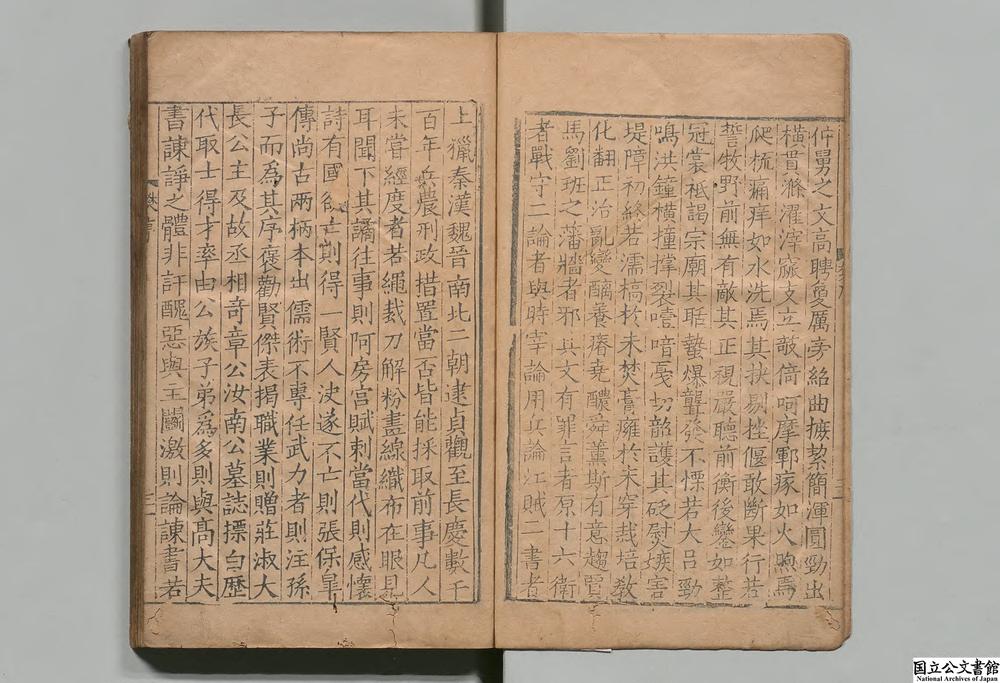 仲舅之文高騁夐厲旁紹曲摭絜簡渾圓勁出
橫貫滌濯滓窳支立敧倚呵摩皸瘃如火煦焉
爬梳痛痒如水洗焉其抉剔挫偃敢斷果行若
誓牧野前無有敵其正視嚴聽前衡後鑾如整
冠裳祗謁宗廟其聒蟄爆聾發不慄若大呂勁
鳴洪鐘橫撞撑裂噎喑戞切韶護其砭熨嫉害
堤障初終若濡槁於未焚膏癰於未穿栽培教
化翻正治亂變醨養瘠堯醲舜薰斯有意趨賈
馬劉班之藩牆者邪其文有罪言者原十六衛
者戰守二論者與時宰論用兵論江賊二書者
上獵秦漢魏晉南北二朝逮貞觀至長慶數千
百年兵農刑政措置當否皆能採取前事凡人
未嘗經度者若繩裁刀解粉畫線織布在眼見
耳聞下其譎往事則阿房宮賦刺當代則感懷
詩有國欲亡則得一賢人決遂不亡則張保皐
傳尚古兩柄本出儒術不專任武力者則注孫
子而為其序襃勸賢傑表揭職業則贈莊淑大
長公主及故丞相奇章公汝南公墓誌摽白歷
代取士得才率由公族子弟為多則與高大夫
書諫諍之體非訐醜惡與主鬬激則論諫書若
序
三
国立公文書館
National Archives of Japan